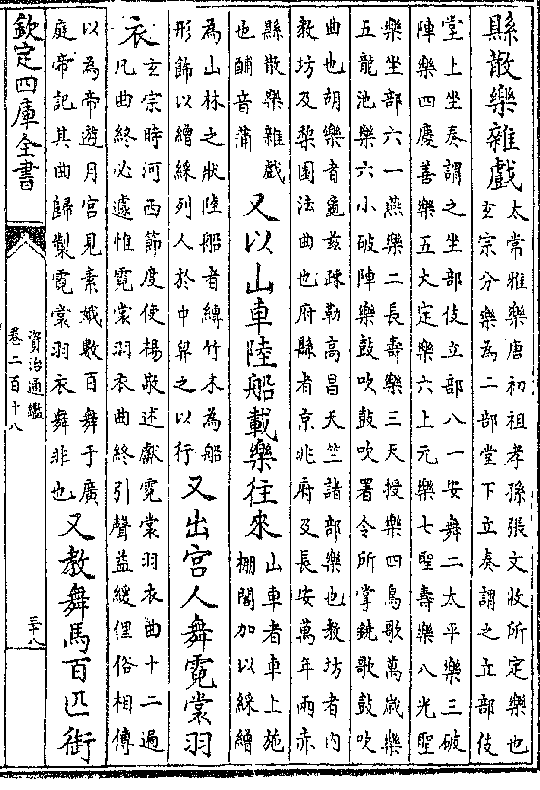 縣散樂雜戲
太常雅樂唐初祖孝孫張文收所定樂也
玄宗分樂為二部堂下立奏謂之立部伎
堂上坐奏謂之坐部伎立部八一安舞二太平樂三破
陣樂四慶善樂五大定樂六上元樂七聖壽樂八光聖
樂坐部六一燕樂二長壽樂三天授樂四鳥歌萬歲樂
五龍池樂六小破陣樂鼓吹鼓吹署令所掌鐃歌鼓吹
曲也胡樂者龜兹疎勒高昌天竺諸部樂也教坊者内
教坊及棃園法曲也府縣者京兆府及長安萬年兩赤
縣散樂雜戲
也酺音蒲
又以山車陸船載樂往來
山車者車上施
棚閣加以綵繒
為山林之狀陸船者縛竹木為船
形飾以繒綵列人於中舁之以行
又出宫人舞霓裳羽
衣
玄宗時河西節度使楊敬述獻霓裳羽衣曲十二遍
凡曲終必遽惟霓裳羽衣曲終引聲益緩俚俗相傳
以為帝遊月宫見素娥數百舞于廣
庭帝記其曲歸製霓裳羽衣舞非也
又教舞馬百匹銜
欽定四庫全書
資治通鑑
卷二百十八
三十八